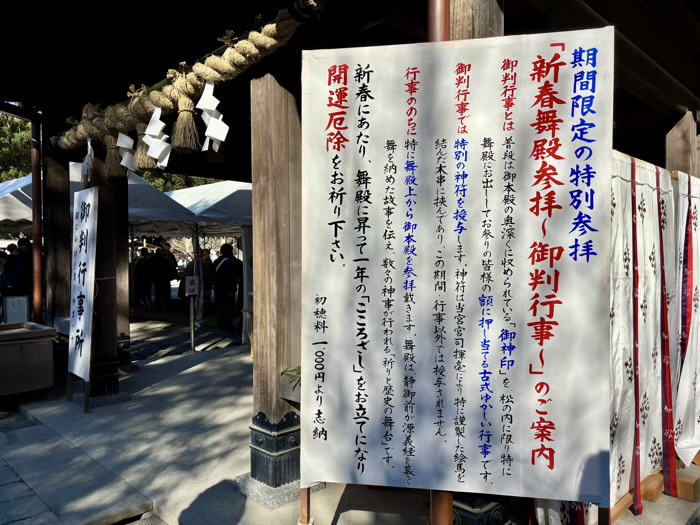 期間限定の特別参拝
「新春舞殿参拝～御判行事～」のご案内
御判行事とは
普段は御本殿の奥深くに収められている「御神印」を、松の内に限り特に
舞殿にお出ししてお参りの皆様の額に押し当てる古式ゆかしい行事です。
御判行事では
特別の神符を授与します。神符は当宮宮司揮毫により特に謹製した絵馬を
結んだ木串に挟んであり、この期間・行事以外では授与されません。
行事ののちに
特に舞殿上から御本殿を参拝戴きます。舞殿は静御前が源義経を慕て
舞を納めた故事を伝え、数々の神事が行われる「祈りと歴史の舞台」です。
新春にあたり、舞殿に昇って一年の「こころざし」をお立てになり
開運厄除をお祈り下さい。
初穂料 一、〇〇〇円より志納
御判行事所
出口